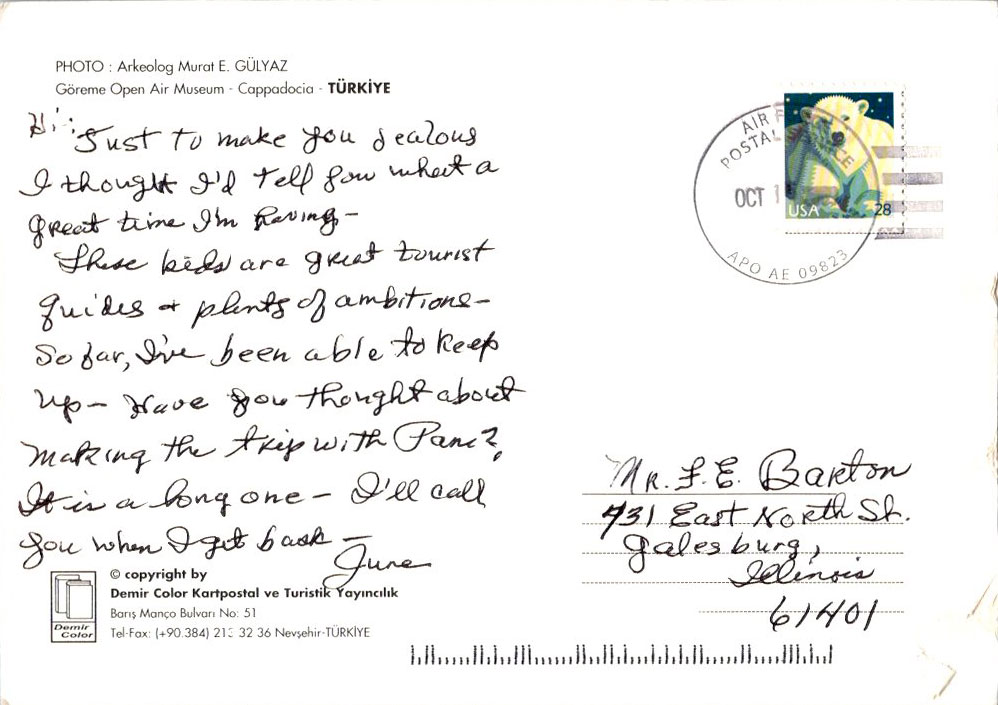 PHOTO : Arkeolog Murat E. GÜLYAZ
Göreme Open Air Museum - Cappadocia - TÜRKİYE
Hi:
Just to make you jealous
I thought I'd tell you what a
great time I'm having—
These kids are great tourist
guides + plenty of ambitions—
So far, I've been able to keep
up— Have you thought about
making the trip with Pam?
It is a long one— I'll call
you when I get back—
June
AIR F
POSTAL CE
OCT 1
APO AE 09823
USA 28
Mr. F. E. Barton
731 East North St.
Galesburg,
Illinois
61401
© copyright by
Demir Color Kartpostal ve Turistik Yayıncılık
Barış Manço Bulvarı No: 51
Tel-Fax: (+90.384) 213 32 36 Nevşehir-TÜRKİYE
Demir
Color